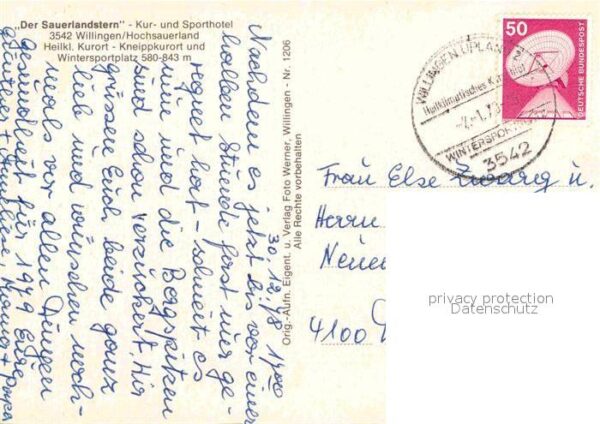 „Der Sauerlandstern" - Kur- und Sporthotel
3542 Willingen/Hochsauerland
Heilkl. Kurort - Kneippkurort und
Wintersportplatz 580-843 m
30.12.78 1700
Nachdem es jetzt bis vor einer
halben Stunde fast nur ge-
regnet hat - schneit es
nun und die Bergspitzen
sind schon verzuckert. Wir
grüssen Euch beide ganz
lieb und wünschen noch-
mals vor allen Dingen
Gesundheit für 1979 Eure
Orig.-Aufn. Eigent. u. Verlag Foto Werner, Willingen - Nr. 1206
Alle Rechte vorbehalten
50
DEUTSCHE BUNDESPOST
WILLINGEN (UPLAND)
Heilklimatisches
WINTERSPORT
3542
Frau Else u.
Herrn
4100
privacy protection
Datenschutz